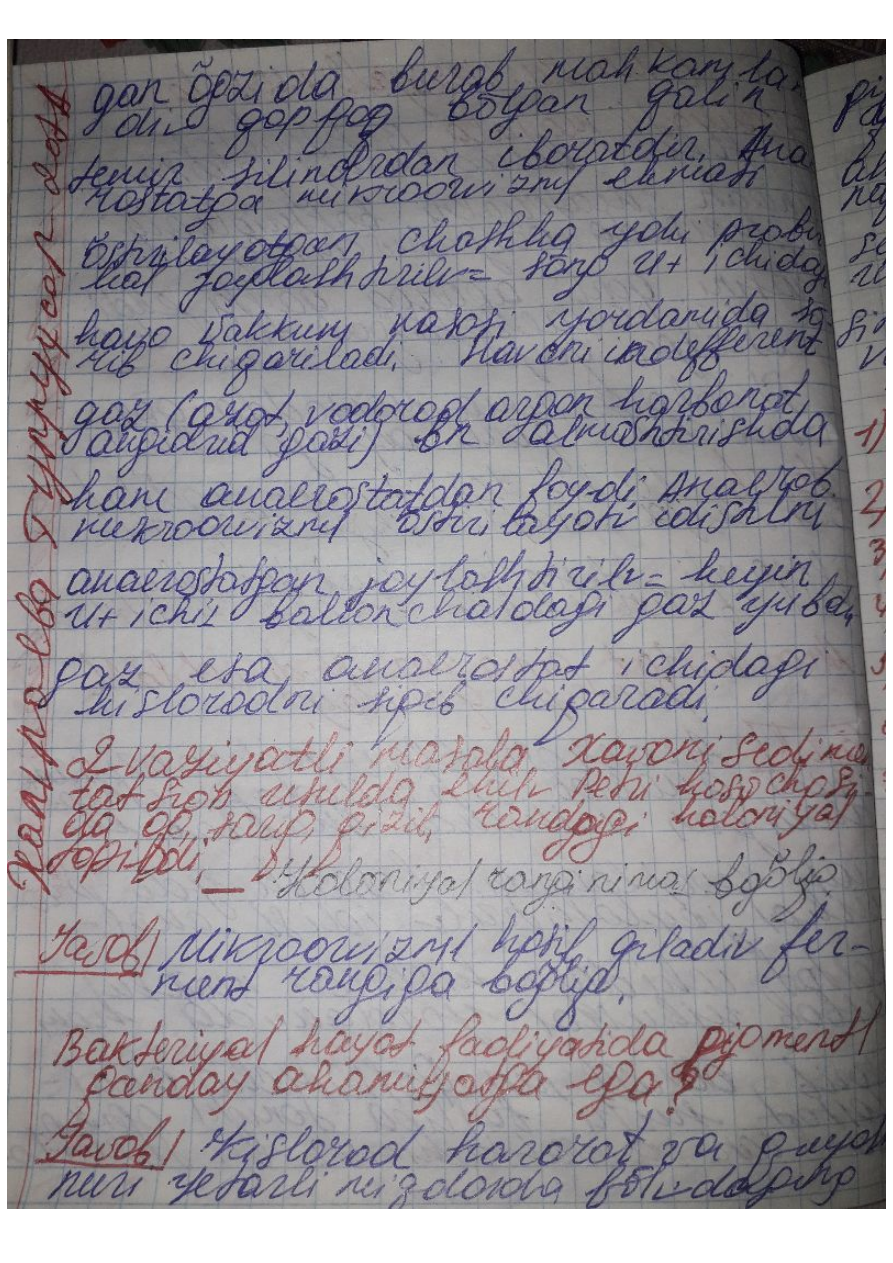 gan õgzida burab mahkamlan
din qopqoq bõlgan qalin
temir silindrdan iboratdir. Ana
rostatga mikroorvizml ekmasi
õstirilayotgan chashka yoki probir
kal joylashtirilv= song u+ ichidagi
havo vakkum nasosi yordamida so
rib chiqariladi. Havoni indefferent
gaz (azot, vodorod argon karbonat
angidrid gazi) bn almashtirishda
ham anaerostatdan foydi Anaerob
mikroorvizml õstirilayoti idishlni
anaerostatgan joylashtirilv= keyin
u+ ichiz ballonchaldagi gaz yubdi
gaz esa anaerostat ichidagi
kislorodni siqib chiqaradi.
2-vaziyatli masala Xavoni sedimen
tatsion usulda ekib Petri kosachasi
da oq, sariq, qizil, rangagi koloniyal
topildi, —
Koloniyal rangi nimaz bog̃liq.
Javob/ Mikroorvizml hosil qiladiv fer-
ment rangiga bog̃liq.
Bakteriyal hayot faoliyatida pigmentl
qanday ahamiyatga ega?
Javob/ Kislorod harorat va quyosh
nuri yetarli miqdorda